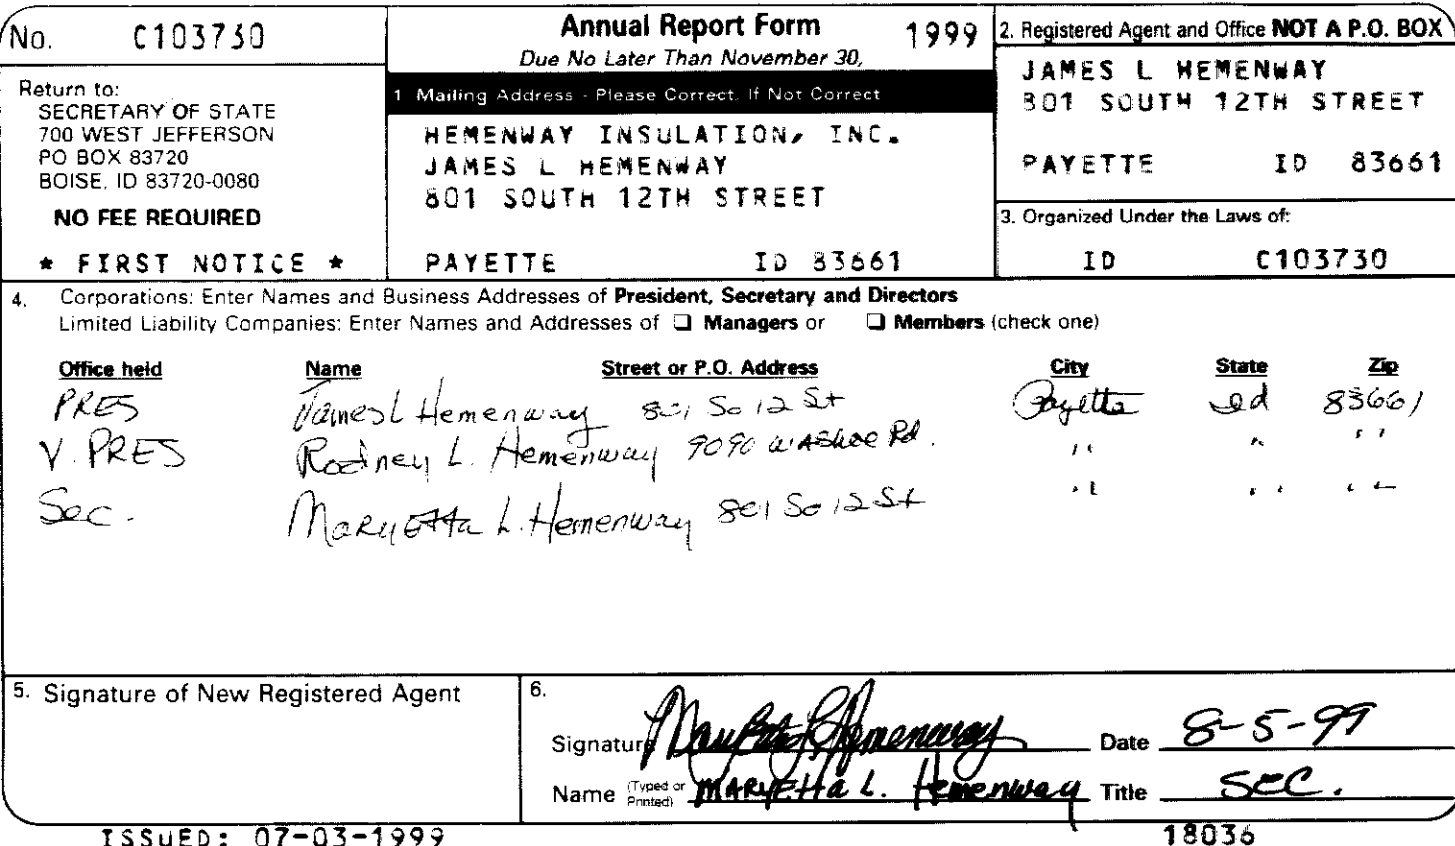 No. C103730
Annual Report Form 1999
Due No Later Than November 30,
Return to:
SECRETARY OF STATE
700 WEST JEFFERSON
PO BOX 83720
BOISE, ID 83720-0080
NO FEE REQUIRED
* FIRST NOTICE *
1 Mailing Address - Please Correct, If Not Correct
HEMENWAY INSULATION, INC.
JAMES L HEMENWAY
801 SOUTH 12TH STREET
PAYETTE ID 83661
2. Registered Agent and Office NOT A P.O. BOX
JAMES L HEMENWAY
801 SOUTH 12TH STREET
PAYETTE ID 83661
3. Organized Under the Laws of:
ID C103730
4. Corporations: Enter Names and Business Addresses of President, Secretary and Directors
Limited Liability Companies: Enter Names and Addresses of ❑ Managers or ❑ Members (check one)
Office held Name Street or P.O. Address City State Zip
PRES James L Hemenway 801 So 12 St Payette Id 83661
V. PRES Rodney L. Hemenway 9090 Washoe Rd. " " "
Sec. Maryetta L. Hemenway 801 So 12 St " " "
5. Signature of New Registered Agent
6.
Signature Maryetta L Hemenway Date 8-5-99
Name (Typed or Printed) MARYEtta L. Hemenway Title SEC.
ISSUED: 07-03-1999 18036